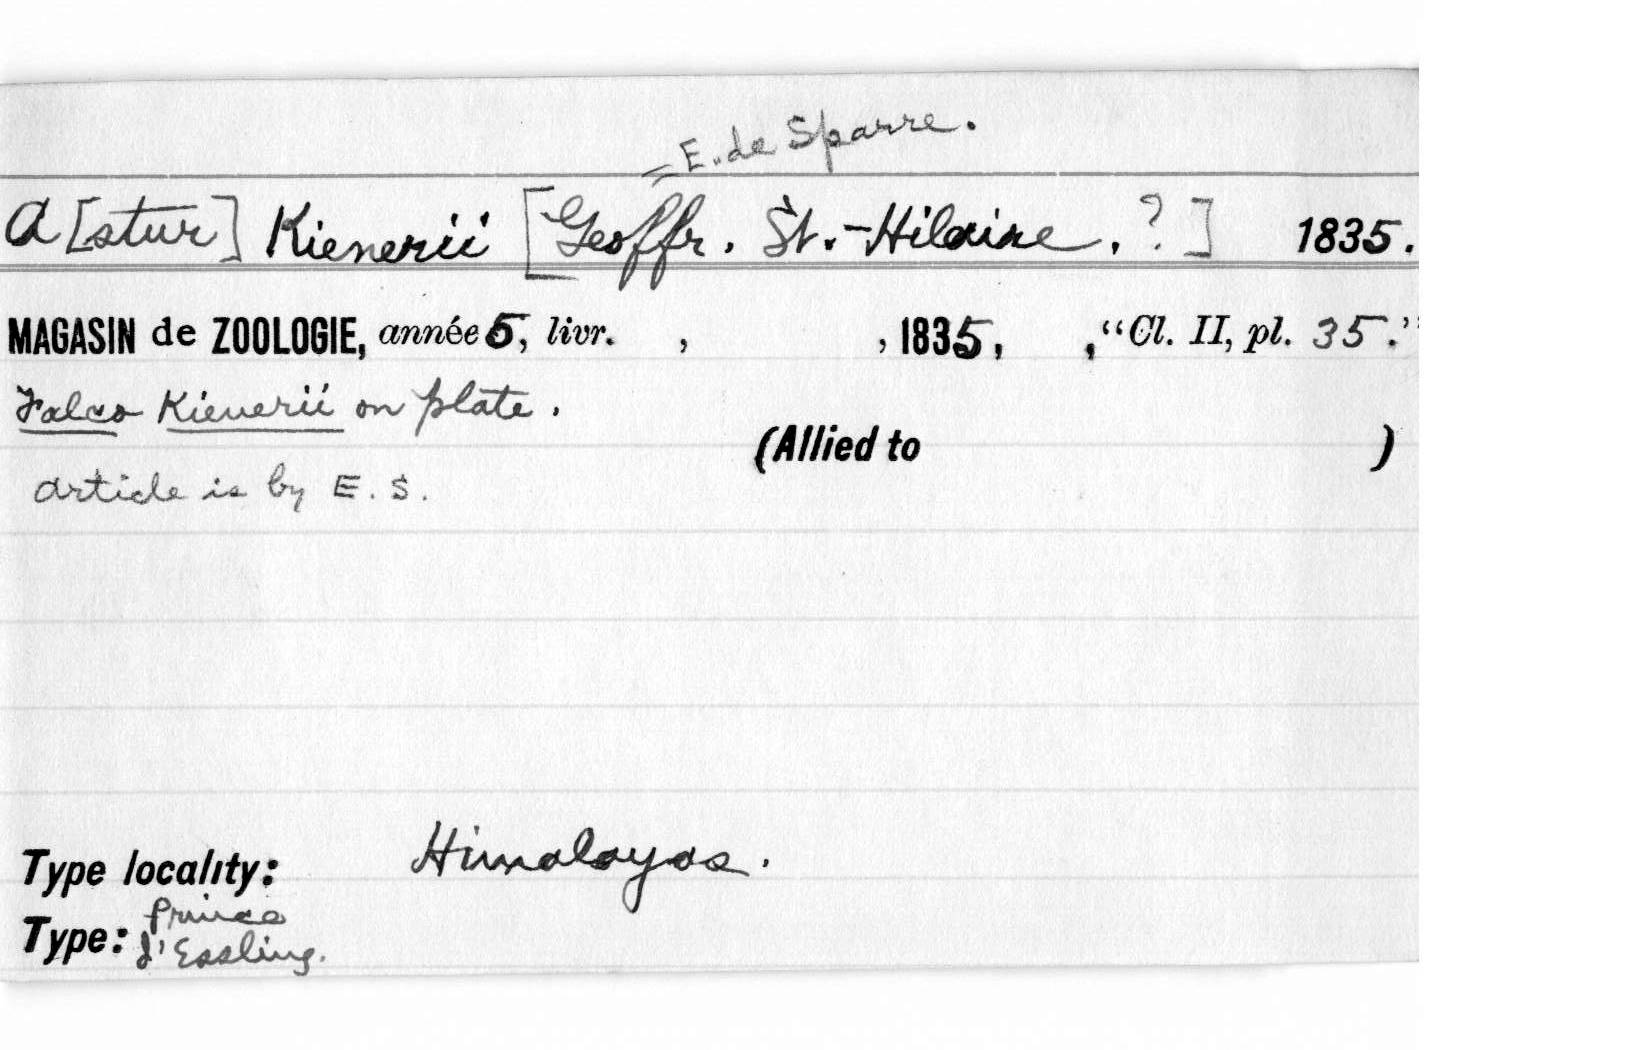 = E. de Sparre.
A[stur] Kienerii [Geoffr. St.-Hilaire. ?] 1835.
MAGASIN de ZOOLOGIE, année 5, livr. , , 1835, , “Cl. II, pl. 35.”
Falco Kienerii on plate.
(Allied to )
article is by E. S.
Type locality: Himalayas.
Type: Prince
d'Essling.